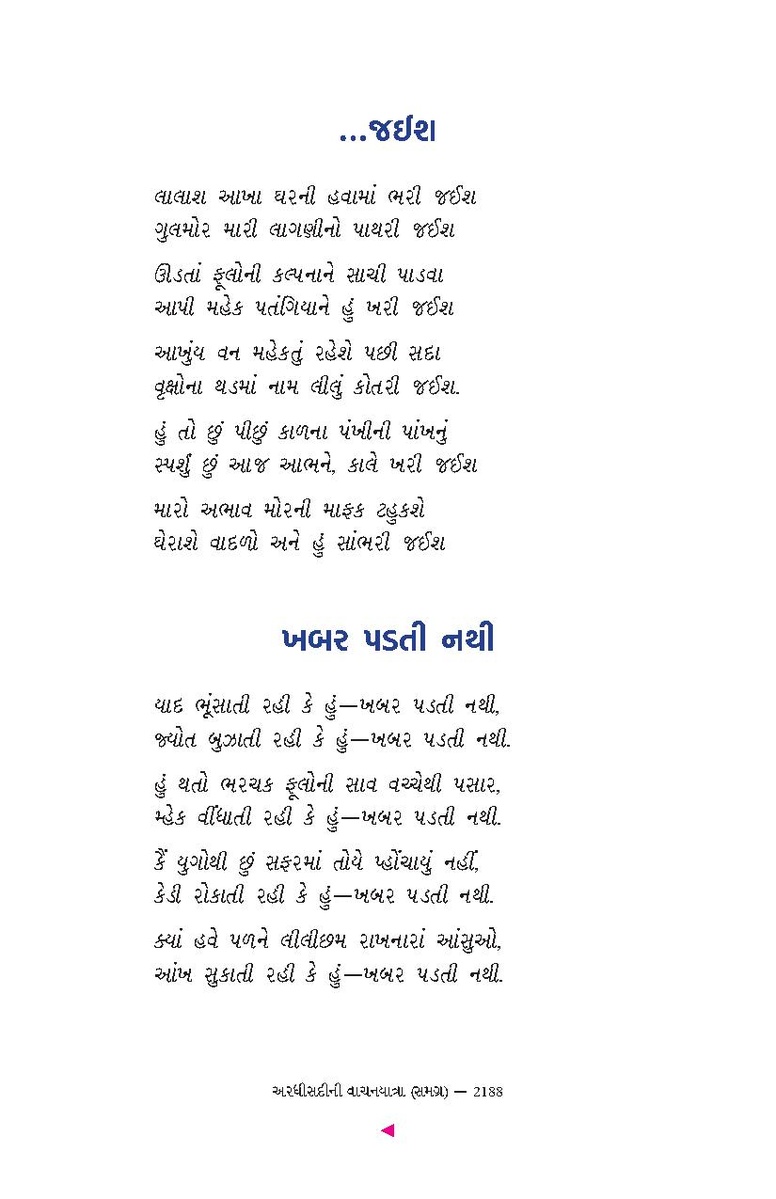 ...જઈશ
લાલાશ આખા ઘરની હવામાં ભરી જઈશ
ગુલમોર મારી લાગણીનો પાથરી જઈશ
ઊડતાં ફૂલોની કલ્પનાને સાચી પાડવા
આપી મહેક પતંગિયાને હું ખરી જઈશ
આખુંય વન મહેકતું રહેશે પછી સદા
વૃક્ષોના થડમાં નામ લીલું કોતરી જઈશ.
હું તો છું પીછું કાળના પંખીની પાંખનું
સ્પર્શું છું આજ આભને, કાલે ખરી જઈશ
મારો અભાવ મોરની માફક ટહુકશે
ઘેરાશે વાદળો અને હું સાંભરી જઈશ
ખબર પડતી નથી
યાદ ભૂંસાતી રહી કે હું—ખબર પડતી નથી,
જ્યોત બુઝાતી રહી કે હું—ખબર પડતી નથી.
હું થતો ભરચક ફૂલોની સાવ વચ્ચેથી પસાર,
મ્હેક વીંધાતી રહી કે હું—ખબર પડતી નથી.
કૈં યુગોથી છું સફરમાં તોયે પ્હોંચાયું નહીં,
કેડી રોકાતી રહી કે હું—ખબર પડતી નથી.
ક્યાં હવે પળને લીલીછમ રાખનારાં આંસુઓ,
આંખ સુકાતી રહી કે હું—ખબર પડતી નથી.
અરધીસદીની વાચનયાત્રા (સમગ્ર) — 2188